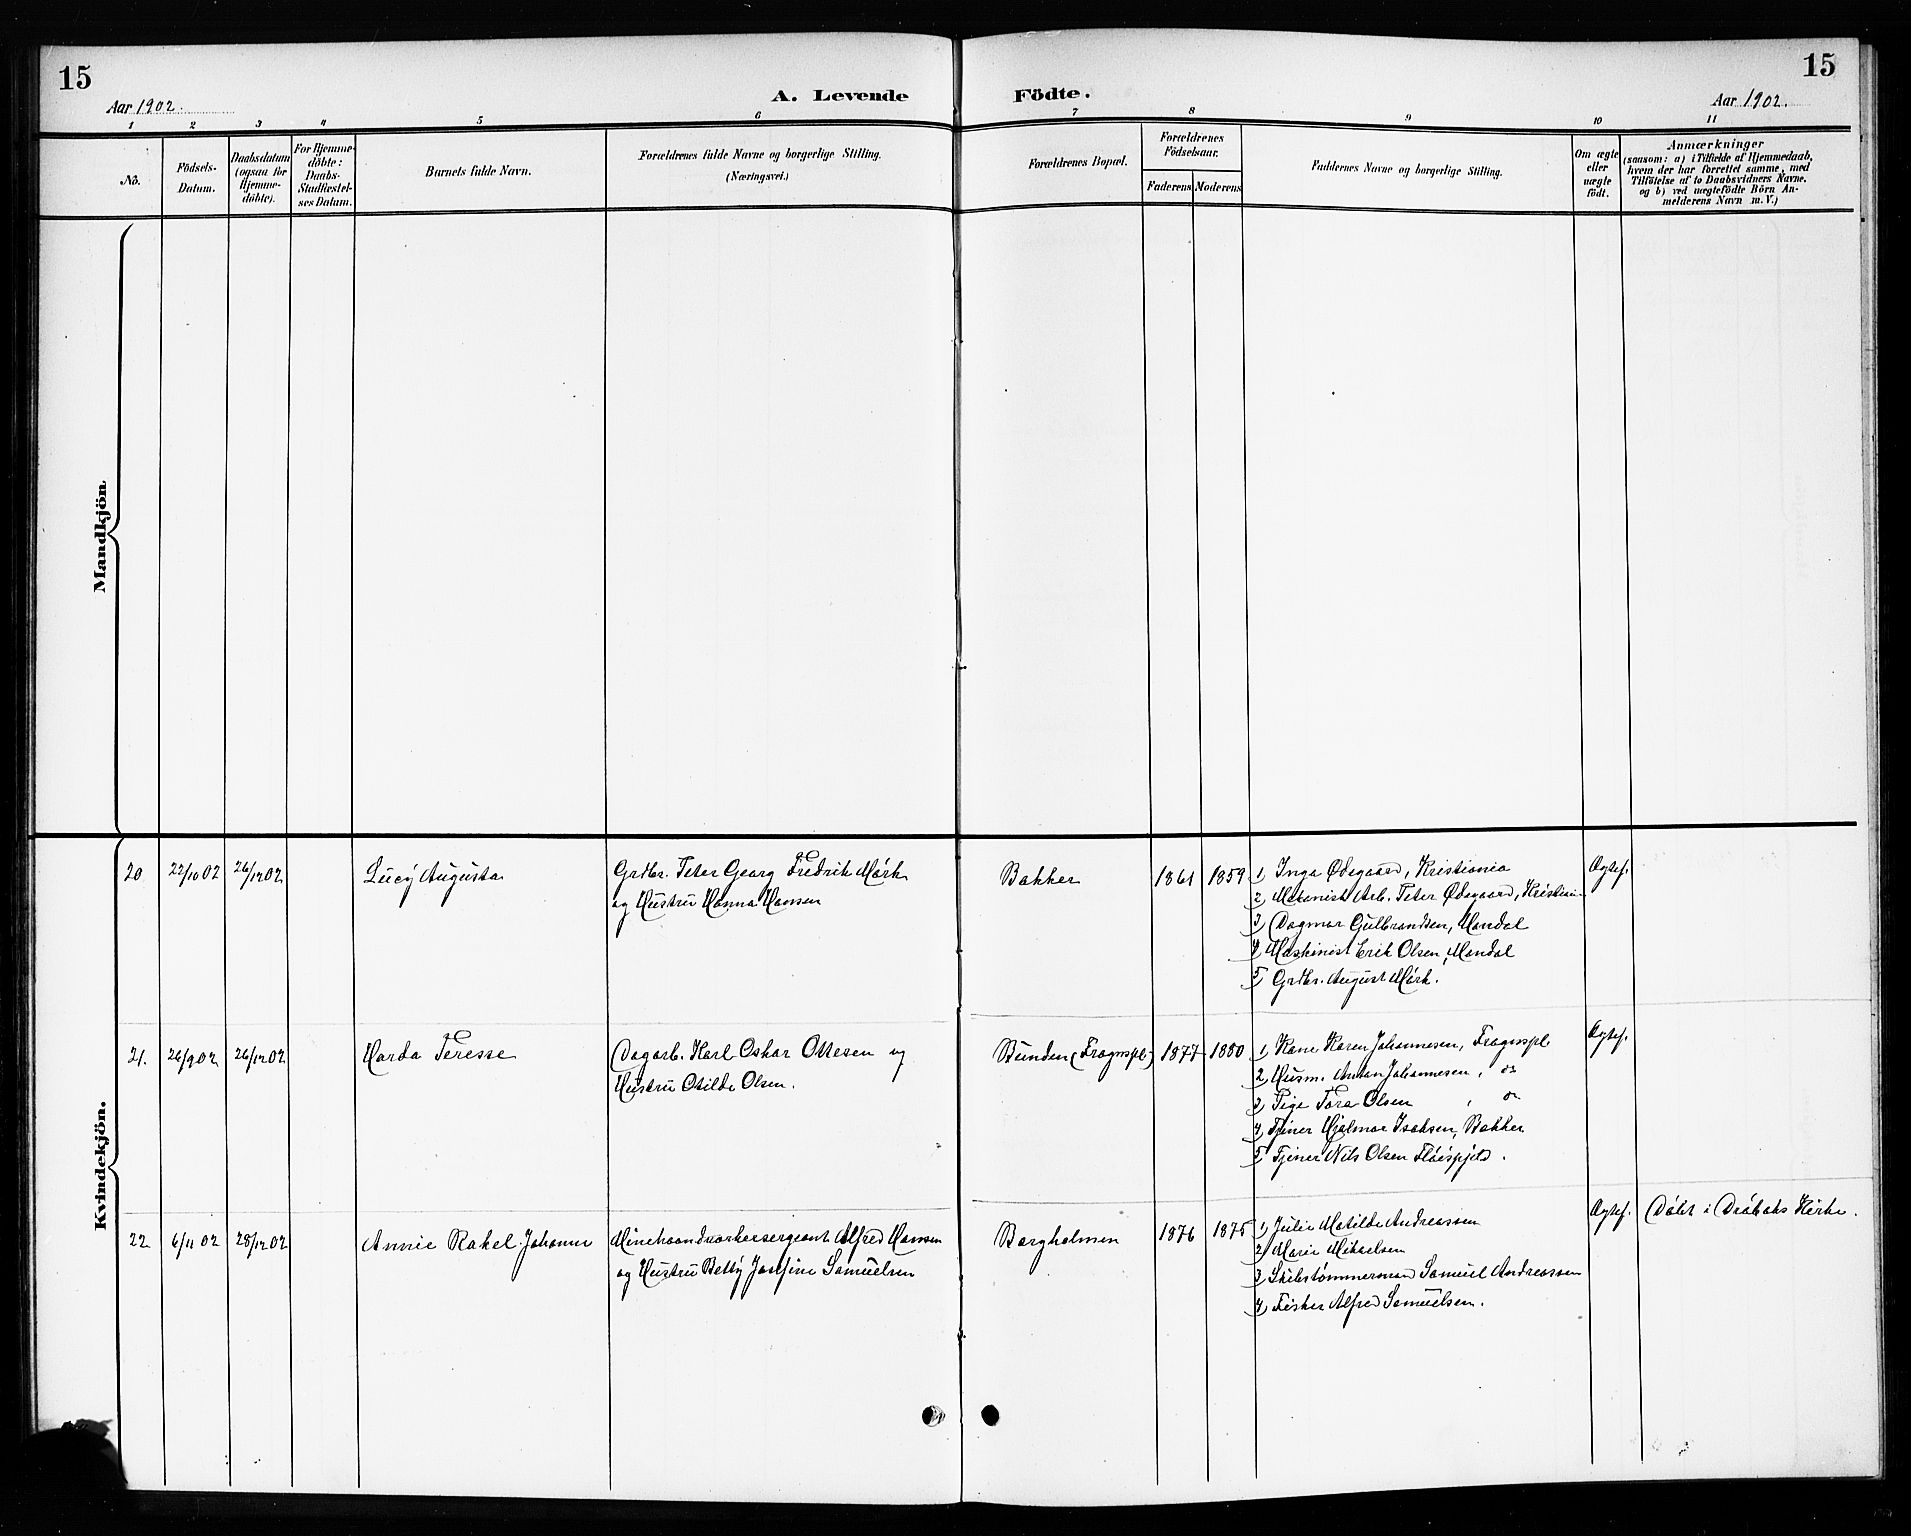 15
15
Aar 1902.
A. Levende
Födte.
Aar 1902.
1 2 3 4 5 6 7 8 9 10 11
No.
Födsels-
Datum.
Daabsdatum
(ogsaa for
Hjemme-
döbte).
For Hjemme-
döbte:
Daabs-
Stadfæstel-
ses Datum.
Barnets fulde Navn.
Forældrenes fulde Navne og borgerlige Stilling.
(Næringsvei.)
Forældrenes Bopæl.
Forældrenes
Födselsaar.
Faderens
Moderens
Faddernes Navne og borgerlige Stilling.
Om ægte
eller
uægte
födt.
Anmærkninger
(saasom: a) i Tilfælde af Hjemmedaab,
hvem der har forrettet samme, med
Tilföielse af to Daabsvidners Navne.
og b) ved uægtefödte Börn An-
melderens Navn m. V.)
Mandkjön
Kvindekjön.
20
22/10 02
26/12 02
Lucy Augusta
Grdbr. Peter Georg Fredrik Mørk
og Hustru Hanna Hansen
Bakker
1861
1859
1) Inga Ødegaard, Kristiania
2) Mekanisk Arb. Peter Ødegaard, Kristian-
3) Dagmar Gulbrandsen, Mandal
4) Maskinist Erik Olsen, Mandal
5) Grdbr. August Mørk.
Ægtef.
21.
26/9 02
26/12 02
Harda Teresse
Dagarb. Karl Oskar Ottesen og
Hustru Otilde Olsen.
Bunden (Fragnspl.)
1877
1880
1) Kone Karen Johannesen, Fragnspl
2) Husm. Anton Johannesen, do
3) Pige Tora Olsen , do
4) Tjener Hjalmar Isaksen, Bakker
5) Tjener Nils Olsen Fløispjeld.
Ægtef.
22
6/11 02
28/12 02
Annie Rakel Johanne
Minehaandværkersergeant Alfred Hansen
og Hustru Betty Josefine Samuelsen
Borgholmen
1876
1875
1) Julie Matilde Andreassen
2) Marie Mikaelsen
3) Skibstømmermand Samuel Andreassen
4) Fisker Alfred Samuelsen.
Ægtef.
Døbt i Drøbaks Kirke.